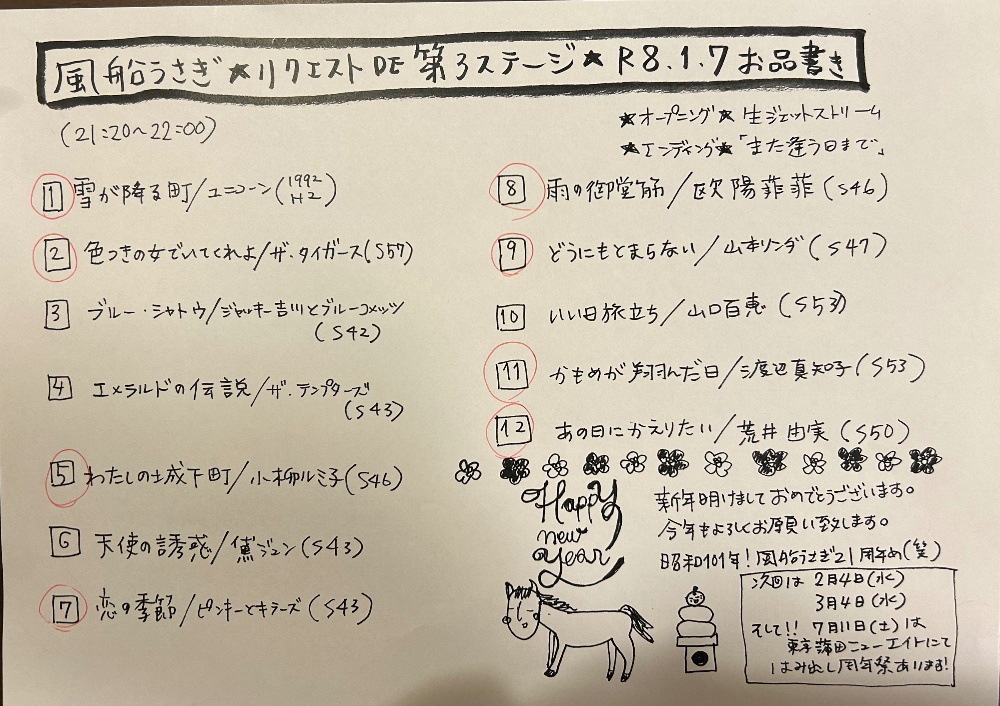 風船うさぎ★リクエストDE第3ステージ★R8.1.7お品書き
(21:20~22:00)
★オープニング★ 生ジェットストリーム
★エンディング★「また逢う日まで」
1 雪が降る町/ユニコーン(1992 H2)
2 色つきの女でいてくれよ/ザ・タイガース(S57)
3 ブルー・シャトウ/ジャッキー吉川とブルーコメッツ
(S42)
4 エメラルドの伝説/ザ・テンプターズ
(S43)
5 わたしの城下町/小柳ルミ子(S46)
6 天使の誘惑/黛ジュン(S43)
7 恋の季節/ピンキーとキラーズ(S43)
8 雨の御堂筋/欧陽菲菲(S46)
9 どうにもとまらない/山本リンダ(S47)
10 いい日旅立ち/山口百恵(S53)
11 かもめが翔んだ日/渡辺真知子(S53)
12 あの日にかえりたい/荒井由実(S50)
Happy
new
Year
新年明けましておめでとうございます。
今年もよろしくお願い致します。
昭和101年!風船うさぎ21周年め(笑)
次回は 2月4日(水)
3月4日(水)
そして!! 7月11日(土)は
東京蒲田ニューエイトにて
はみ出し周年祭あります!